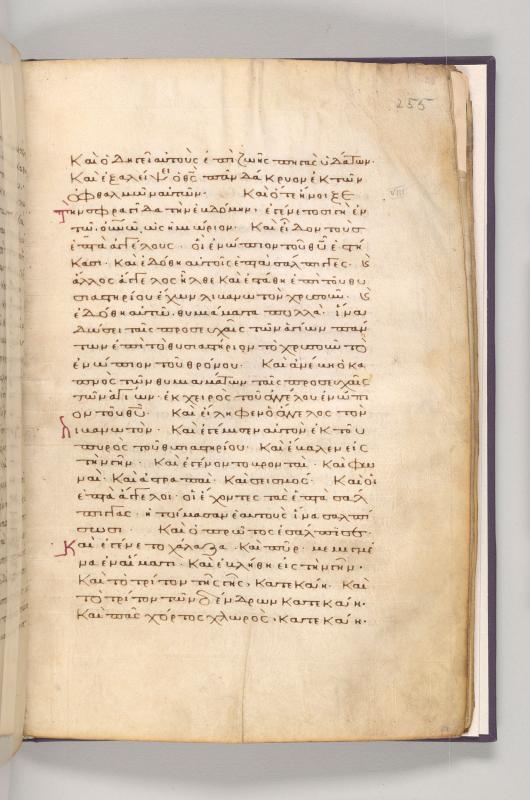 255
Καὶ ὁδηγεῖ αὐτοὺς ἐπὶ ζωῆς πηγὰς ὑδάτων·
Καὶ ἐξαλείψει ὁ θς πᾶν δάκρυον ἐκ τῶν
ὀφθαλμῶν αὐτῶν· Καὶ ὅτε ἤνοιξε
VIII
τὴν σφραγίδα τὴν ἑβδόμην, ἐγένετο σιγὴ ἐν
τῶ οὐνῶ ὡς ἡμιώριον· Καὶ εἶδον τοὺς
ἑπτὰ ἀγγέλους· οἳ ἐνώπιον τοῦ θυ ἑστή
κασι· Καὶ ἐδόθη αὐτοῖς ἑπτὰ σάλπιγγες·
ἄλλος ἄγγελος ἦλθε Καὶ ἐστάθη ἐπὶ τοῦ θυ
σιαστηρίου ἔχων λιβανωτὸν χρυσοῦν·
ἐδόθη αὐτῶ θυμιάματα πολλὰ· ἵνα
δώσει ταῖς προσευχαῖς τῶν ἁγίων πάν
των ἐπὶ τὸ θυσιαστήριον τὸ χρυσοῦν τὸ
ἐνώπιον τοῦ θρόνου· Καὶ ἀνέβη ὁ κα
πνὸς τῶν θυμιαμάτων ταῖς προσευχαῖς
τῶν ἁγίων· ἐκ χειρὸς τοῦ ἀγγέλου ἐνώπι
ον τοῦ θυ· Καὶ εἴληφεν ὁ ἄγγελος τὸν
λιβανωτὸν· Καὶ ἐγέμισεν αὐτὸν ἐκ τοῦ
πυρὸς τοῦ θυσιαστηρίου· Καὶ ἔβαλεν εἰς
τὴν γῆν· Καὶ ἐγένοντο βρονταὶ· Καὶ φω
ναὶ· Καὶ ἀστραπαὶ· Καὶ σεισμὸς· Καὶ οἱ
ἑπτὰ ἄγγελοι· οἱ ἔχοντες τὰς ἑπτὰ σάλ
πιγγας· ἡτοίμασαν ἑαυτοὺς ἵνα σαλπί
σωσι· Καὶ ὁ πρῶτος ἐσάλπισεν·
Καὶ ἐγένετο χάλαζα· Καὶ πῦρ· μεμιγμέ
να ἐν αἵματι· Καὶ ἐβλήθη εἰς τὴν γῆν·
Καὶ τὸ τρίτον τῆς γῆς, κατεκάη· Καὶ
τὸ τρίτον τῶν δένδρων κατεκάη·
Καὶ πᾶς χόρτος χλωρὸς, κατεκάη·